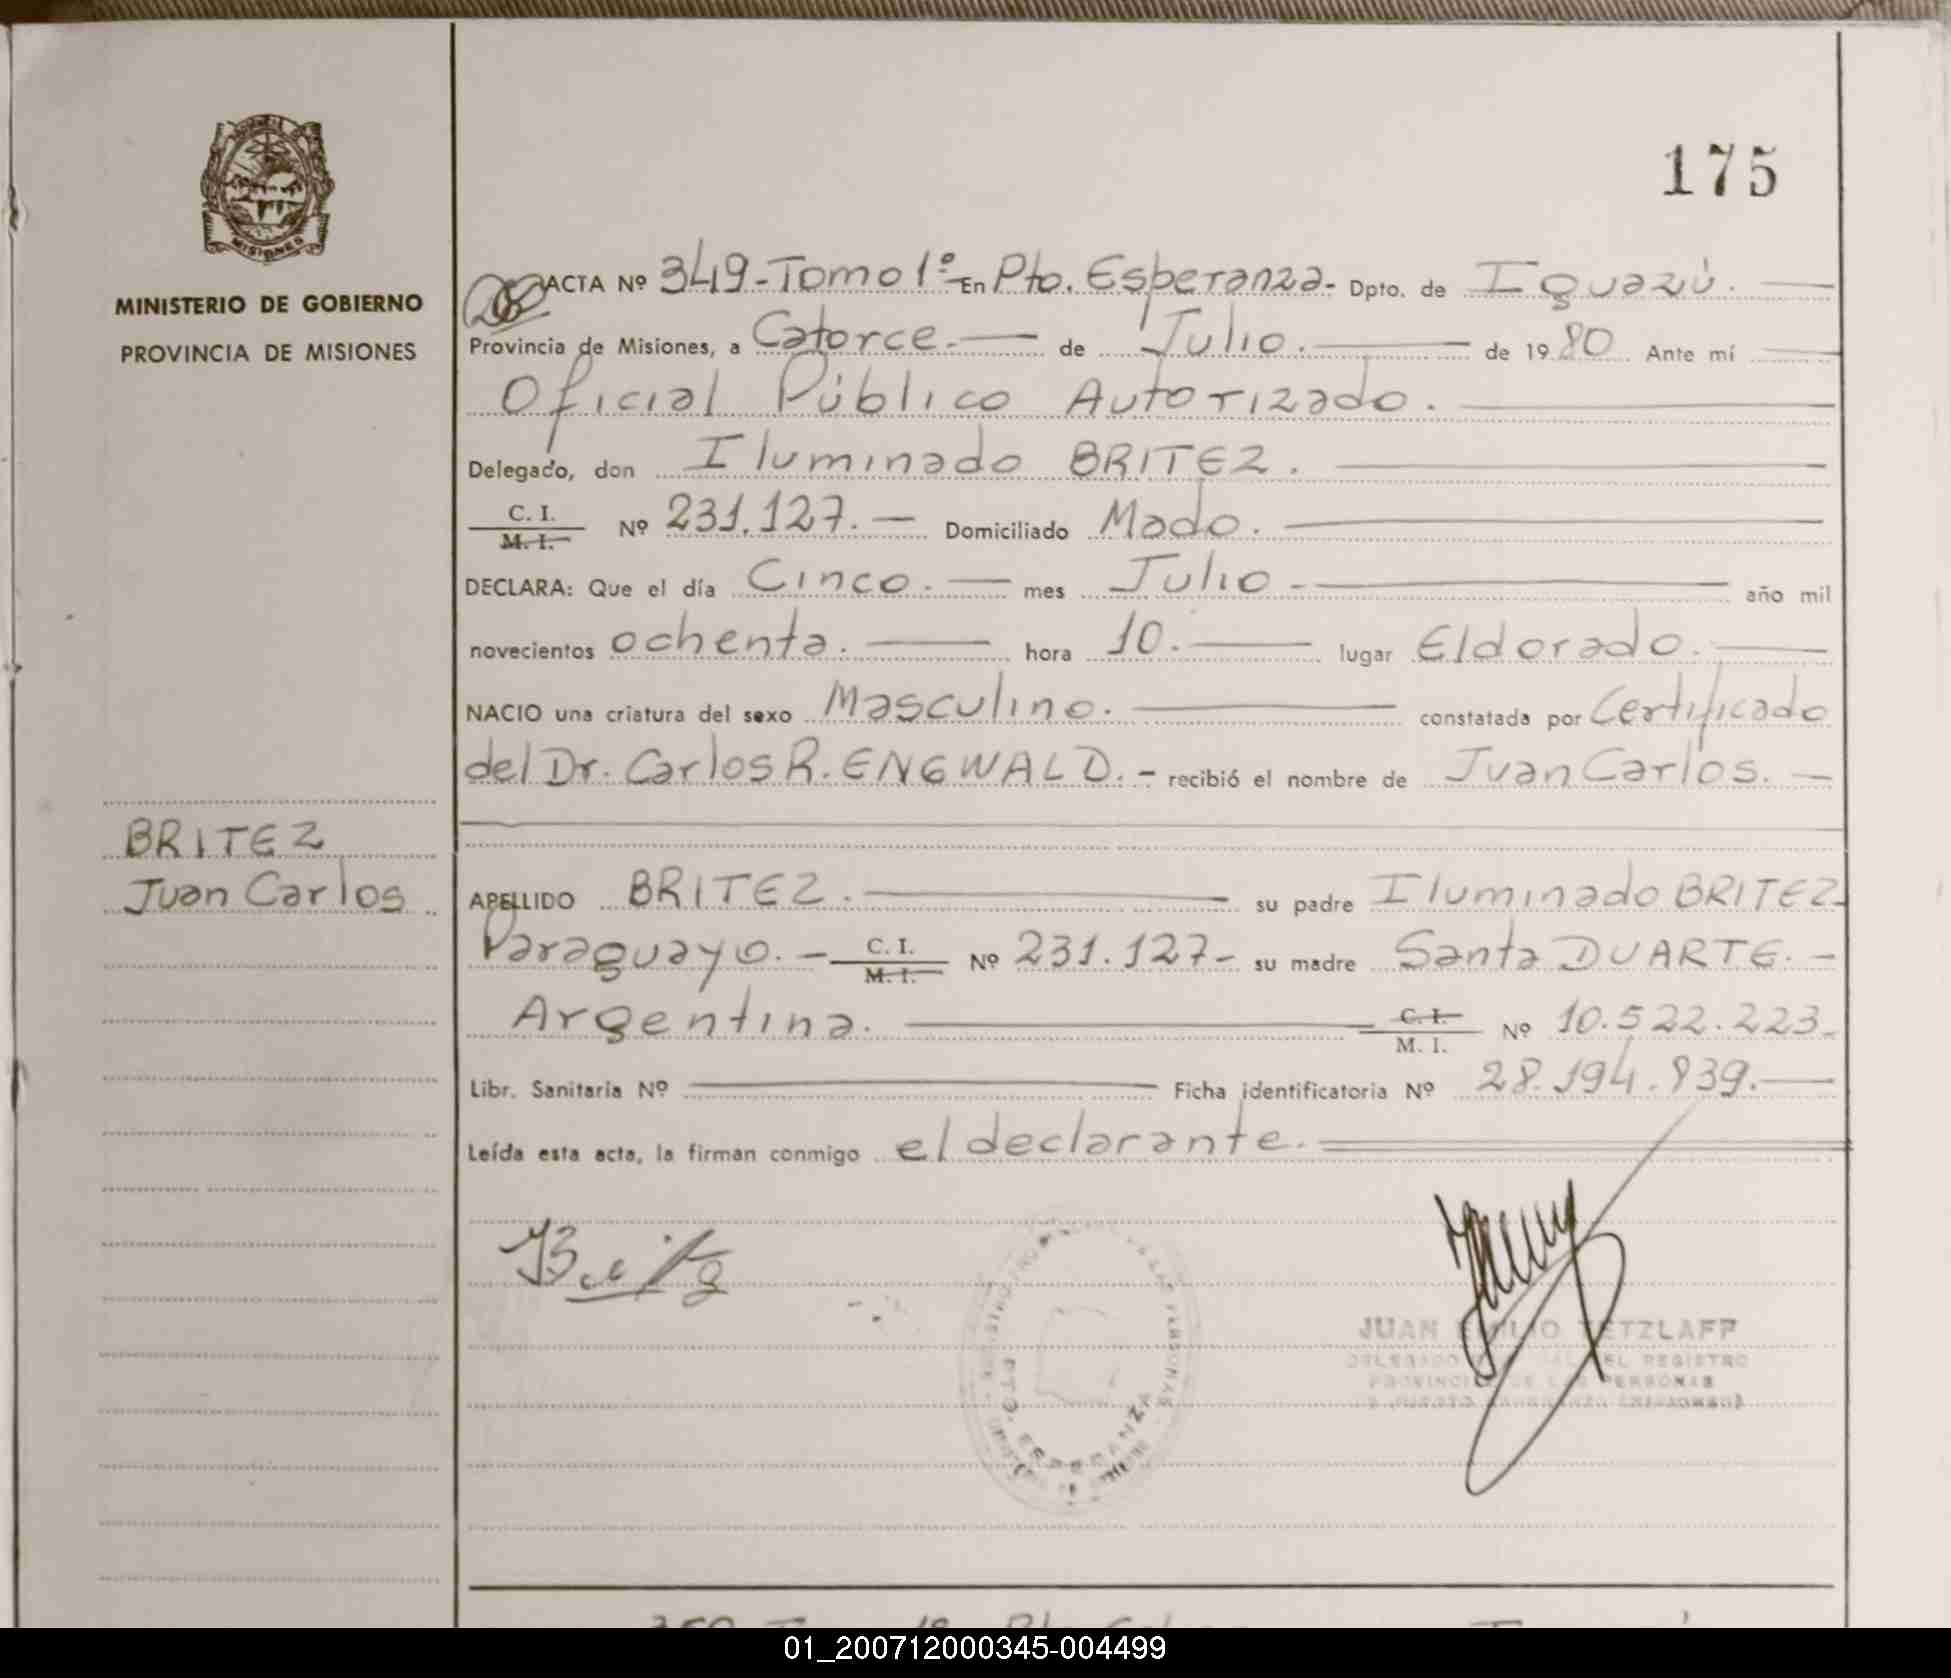 175
MISIONES
MINISTERIO DE GOBIERNO
PROVINCIA DE MISIONES
BRITEZ
Juan Carlos
ACTA Nº 349-Tomo 1º- En Pto. Esperanza- Dpto. de Iguazú.
Provincia de Misiones, a Catorce.- de Julio. de 1980 Ante mí
Oficial Público Autorizado.
Delegado, don Iluminado BRITEZ.
C. I. / M. I. Nº 231.127.- Domiciliado Mado.
DECLARA: Que el día Cinco.- mes Julio.- año mil
novecientos ochenta. hora 10. lugar Eldorado.
NACIO una criatura del sexo Masculino. constatada por Certificado
del Dr. Carlos R. ENGWALD.- recibió el nombre de Juan Carlos.-
APELLIDO BRITEZ. su padre Iluminado BRITEZ-
Paraguayo.- C. I. / M. I. Nº 231.127- su madre Santa DUARTE.-
Argentina. C. I. / M. I. Nº 10.522.223.
Libr. Sanitaria Nº Ficha identificatoria Nº 28.194.839.
Leída esta acta, la firman conmigo el declarante.
JUAN EMILIO TETZLAFF
DELEGADO DEL REGISTRO
PROVINCIAL DE LAS PERSONAS
PTO. ESPERANZA
01_200712000345-004499